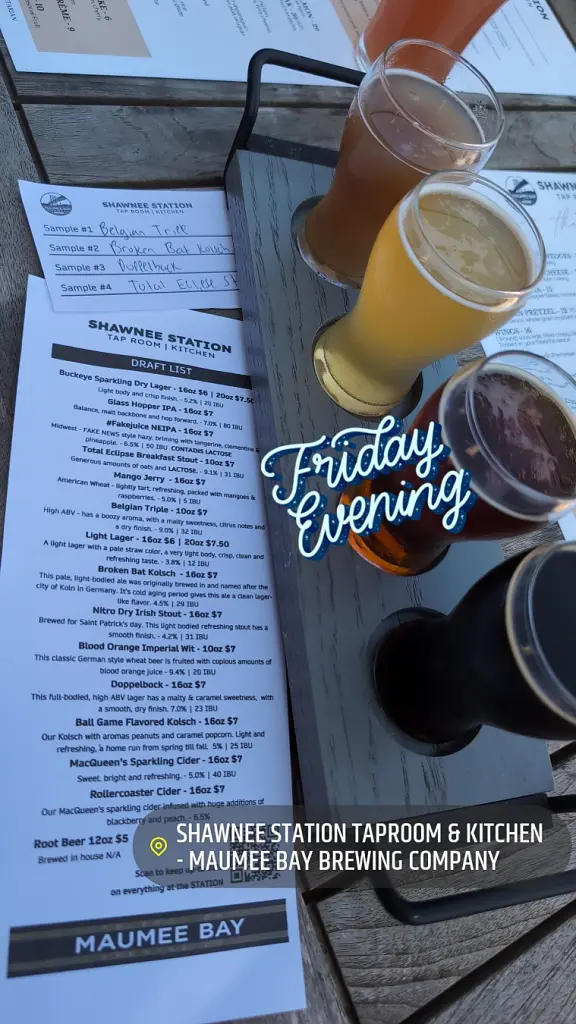 KE - 6
RÈME - 9
SHAWNEE STATION
TAP ROOM | KITCHEN
Sample #1 Belgian Triple
Sample #2 Broken Bat Kolsch
Sample #3 Doppelbock
Sample #4 Total Eclipse St
SHAWNEE STATION
TAP ROOM | KITCHEN
DRAFT LIST
Buckeye Sparkling Dry Lager - 16oz $6 | 20oz $7.50
Light body and crisp finish. - 5.2% | 20 IBU
Glass Hopper IPA - 16oz $7
Balance, malt backbone and hop forward. - 7.0% | 80 IBU
#Fakejuice NEIPA - 16oz $7
Midwest - FAKE NEWS style hazy, briming with tangerine, clementine &
pineapple. - 6.5% | 50 IBU CONTAINS LACTOSE
Total Eclipse Breakfast Stout - 10oz $7
Generous amounts of oats and LACTOSE. - 9.1% | 31 IBU
Mango Jerry - 16oz $7
American Wheat - lightly tart, refreshing, packed with mangoes &
raspberries. - 5.0% | 5 IBU
Belgian Triple - 10oz $7
High ABV - has a boozy aroma, with a malty sweetness, citrus notes and
a dry finish. - 9.0% | 32 IBU
Light Lager - 16oz $6 | 20oz $7.50
A light lager with a pale straw color, a very light body, crisp, clean and
refreshing taste. - 3.8% | 12 IBU
Broken Bat Kolsch - 16oz $7
This pale, light-bodied ale was originally brewed in and named after the
city of Koln in Germany. It's cold aging period gives this ale a clean lager-
like flavor. 4.5% | 29 IBU
Nitro Dry Irish Stout - 16oz $7
Brewed for Saint Patrick's day. This light bodied refreshing stout has a
smooth finish. - 4.2% | 31 IBU
Blood Orange Imperial Wit - 10oz $7
This classic German style wheat beer is fruited with copious amounts of
blood orange juice - 9.4% | 20 IBU
Doppelbock - 16oz $7
This full-bodied, high ABV lager has a malty & caramel sweetness, with
a smooth, dry finish. 7.0% | 23 IBU
Ball Game Flavored Kolsch - 16oz $7
Our Kolsch with aromas peanuts and caramel popcorn. Light and
refreshing, a home run from spring till fall. 5% | 25 IBU
MacQueen's Sparkling Cider - 16oz $7
Sweet, bright and refreshing. - 5.0% | 40 IBU
Rollercoaster Cider - 16oz $7
Our MacQueen's sparkling cider infused with huge additions of
blackberry and peach. - 6.5%
Root Beer 12oz $5
Brewed in house N/A
Scan to keep up
on everything at the STATION
MAUMEE BAY
Friday
Evening
SHAWNEE STATION TAPROOM & KITCHEN
- MAUMEE BAY BREWING COMPANY